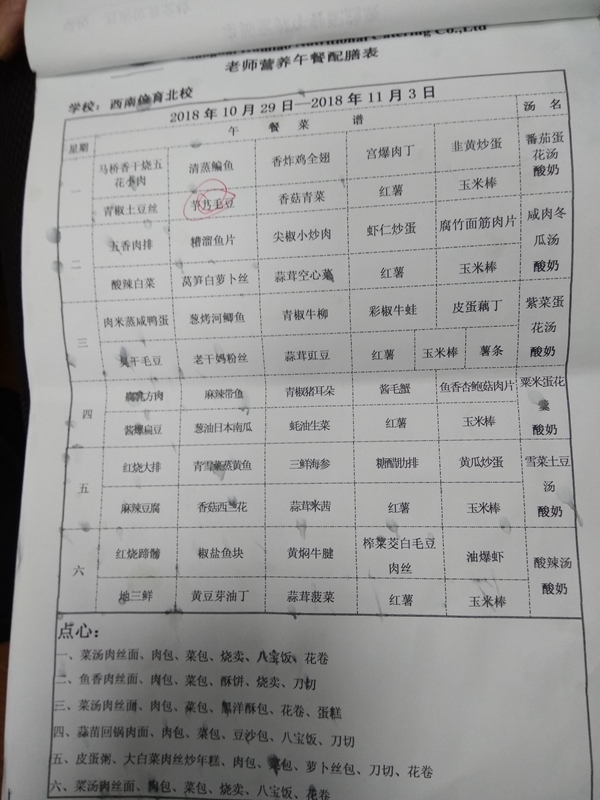 Nutritional Catering Co.,Ltd
老师营养午餐配膳表
学校：西南位育北校
2018 年 10 月 29 日—2018 年 11 月 3 日
星期 午 餐 菜 谱 汤 名
一 马桥香干烧五花小肉 清蒸鳊鱼 香炸鸡全翅 宫爆肉丁 韭黄炒蛋 番茄蛋花汤 酸奶
青椒土豆丝 毛豆 香菇青菜 红薯 玉米棒
二 五香肉排 糟溜鱼片 尖椒小炒肉 虾仁炒蛋 腐竹面筋肉片 咸肉冬瓜汤 酸奶
酸辣白菜 莴笋白萝卜丝 蒜茸空心菜 红薯 玉米棒
三 肉米蒸咸鸭蛋 葱烤河鲫鱼 青椒牛柳 彩椒牛蛙 皮蛋藕丁 紫菜蛋花汤 酸奶
干毛豆 老干妈粉丝 蒜茸豇豆 红薯 玉米棒 薯条
四 腐乳方肉 麻辣带鱼 青椒猪耳朵 酱毛蟹 鱼香杏鲍菇肉片 粟米蛋花羹 酸奶
酱爆扁豆 葱油日本南瓜 蚝油生菜 红薯 玉米棒
五 红烧大排 青雪菜蒸黄鱼 三鲜海参 糖醋肋排 黄瓜炒蛋 雪菜土豆汤 酸奶
麻辣豆腐 香菇西兰花 蒜茸米苋 红薯 玉米棒
六 红烧蹄髈 椒盐鱼块 黄焖牛腱 榨菜茭白毛豆肉丝 油爆虾 酸辣汤 酸奶
地三鲜 黄豆芽油丁 蒜茸菠菜 红薯 玉米棒
点心：
一、菜汤肉丝面、肉包、菜包、烧卖、八宝饭、花卷
二、鱼香肉丝面、肉包、菜包、酥饼、烧卖、刀切
三、菜汤肉丝面、肉包、菜包、洋酥包、花卷、蛋糕
四、蒜苗回锅肉面、肉包、菜包、豆沙包、八宝饭、刀切
五、皮蛋粥、大白菜肉丝炒年糕、肉包、菜包、萝卜丝包、刀切、花卷
六、菜汤肉丝面、肉包、菜包、烧卖、八宝饭、花卷